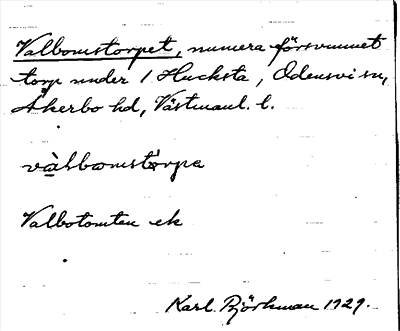 Valbomstorpet, numera försvunnet
torp under 1 Hucksta, Odensvi sn,
Åkerbo hd, Västmanl. l.
vàlbomstórpe
Valbotomten ek
Karl Björkman 1929.